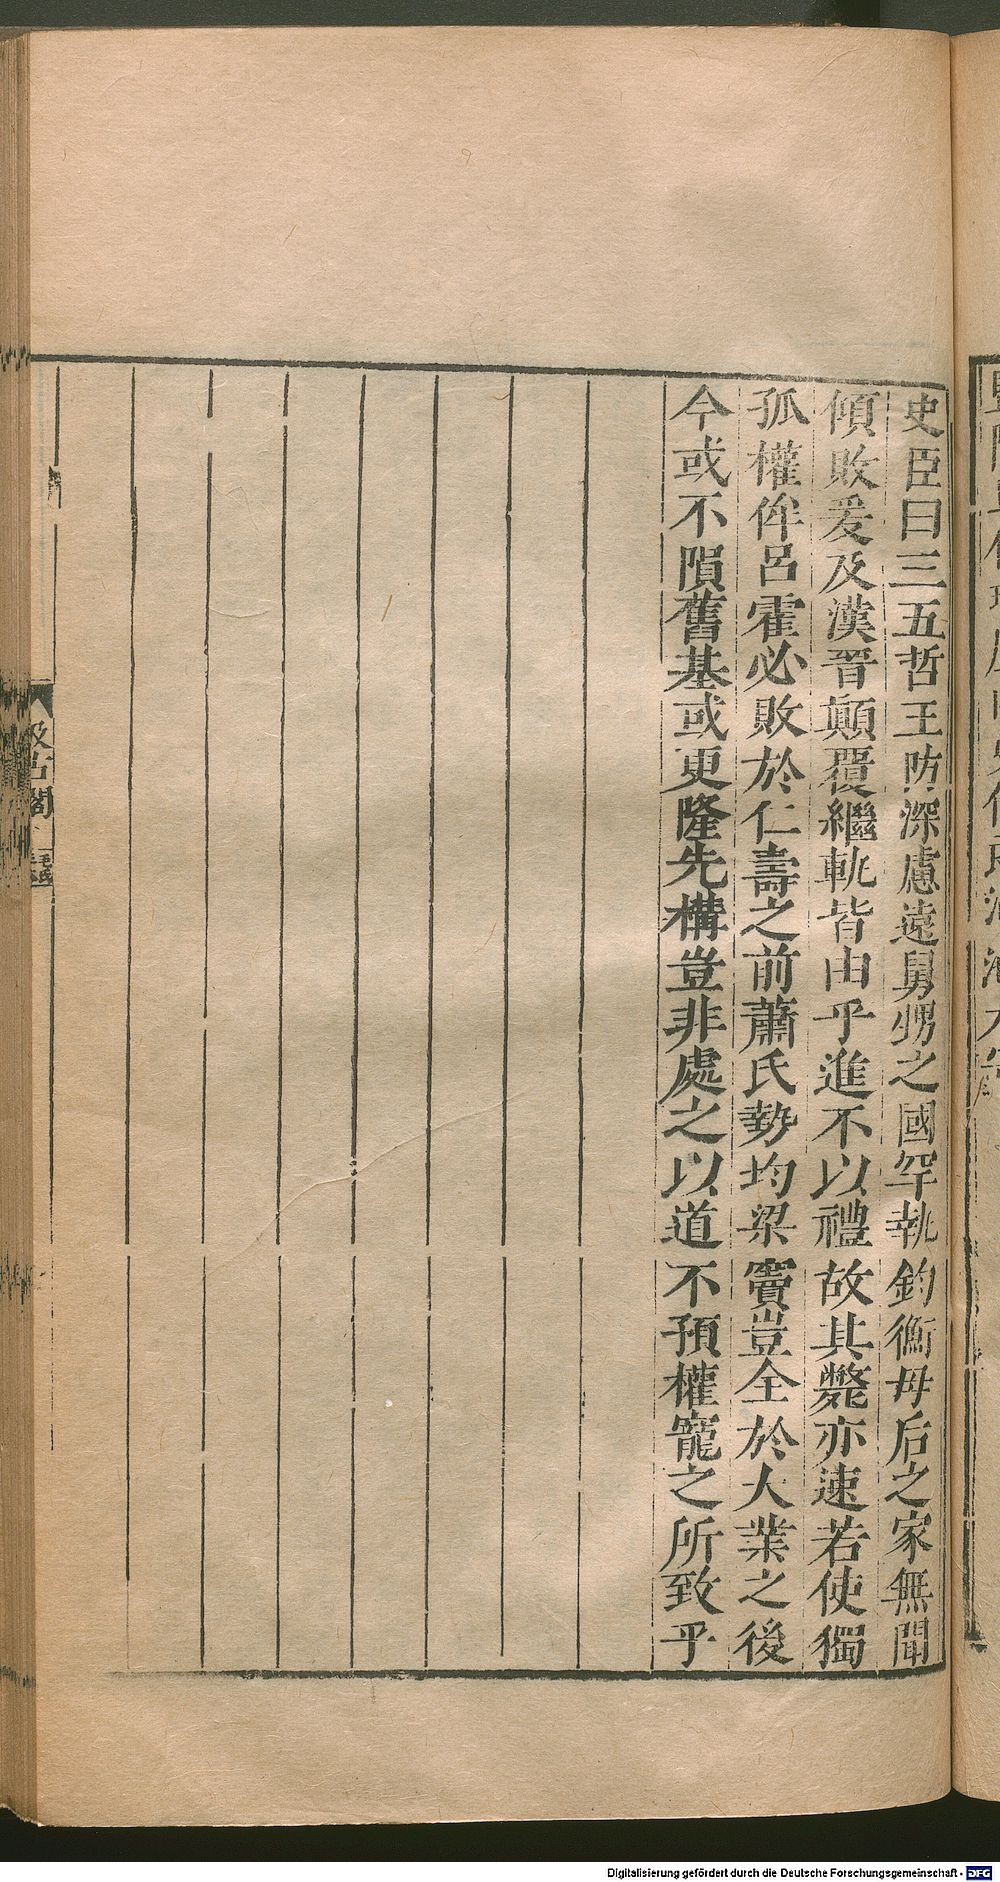 史臣曰三五哲王防深慮遠舅甥之國罕執鈞衡母后之家無聞
傾敗爰及漢晉顛覆繼軌皆由乎進不以禮故其斃亦速若使獨
孤權侔呂霍必敗於仁壽之前蕭氏勢均梁竇豈全於大業之後
今或不隕舊基或更隆先構豈非處之以道不預權寵之所致乎
汲古閣
毛氏
Digitalisierung gefördert durch die Deutsche Forschungsgemeinschaft - DFG